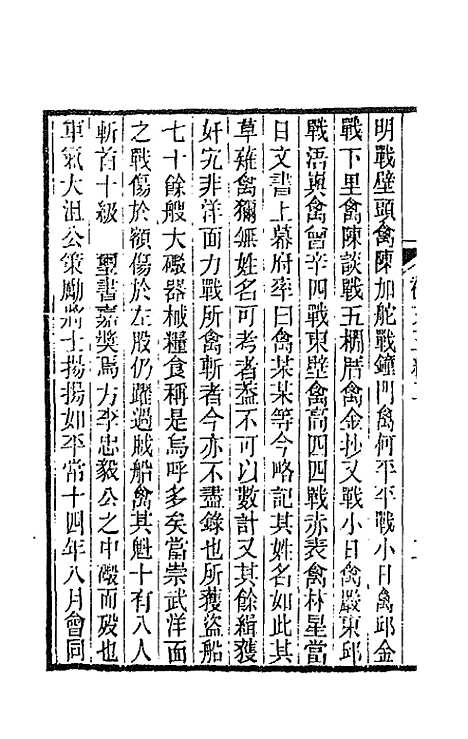 明戰壁頭禽陳加舵戰鐘門禽何平平戰小日禽邱金
戰下里禽陳談戰五欄厝禽金抄又戰小日禽嚴東邱
戰浯與禽曾辛四戰東壁禽高四四戰赤表禽林星當
日文書上幕府率曰禽某某等今略記其姓名如此其
草薙禽獮無姓名可考者葢不可以數計又其餘緝獲
奸宄非洋面力戰所禽斬者今亦不盡錄也所獲盜船
七十餘艘大礮器械糧食稱是烏呼多矣當崇武洋面
之戰傷於額傷於左股仍躍過賊船禽其魁十有八人
斬首十級 璽書嘉奬焉方李忠毅公之中礮而殁也
軍氣大沮公策勵將士揚揚如平常十四年八月會同